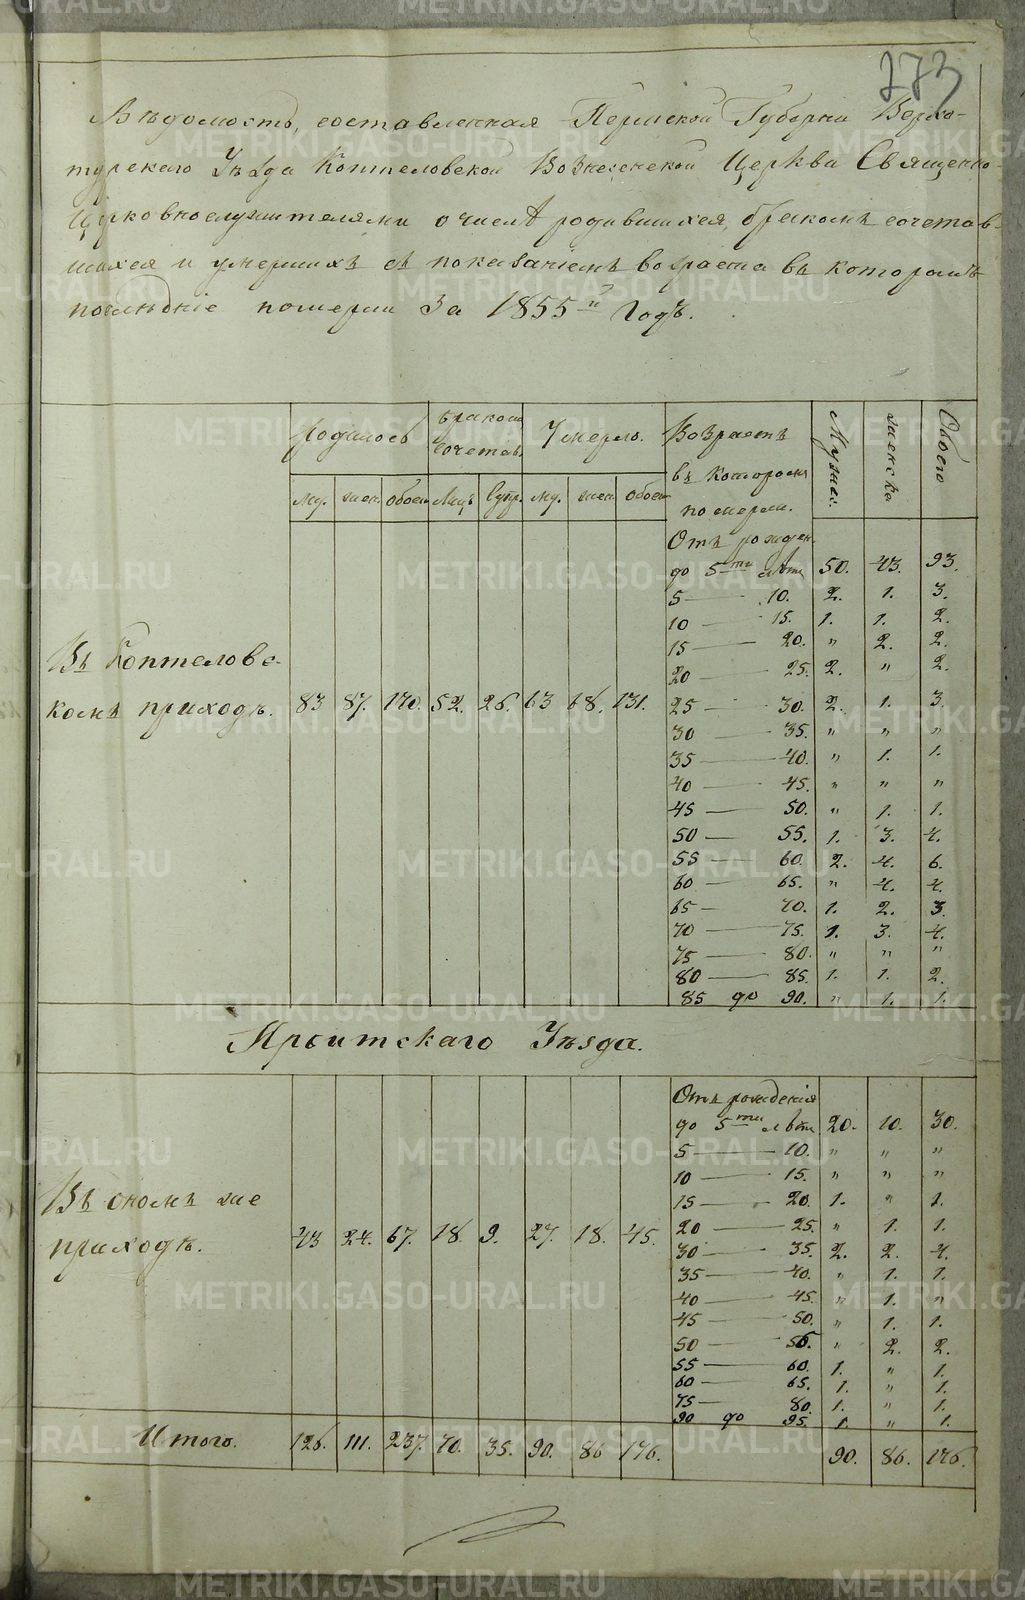 273
Вѣдомость, составленная Пермской Губерніи Верхо-
турскаго Уѣзда Коптеловской Вознесенской Церкви Священно-
Церковнослужителями о числѣ родившихся, бракомъ сочетав-
шихся и умершихъ съ показаніемъ возраста въ которомъ
послѣдніе померли За 1855й Годъ.
Родилось бракомъ сочетав. Умерло. Возрастъ въ которомъ померли. Мужес. женска Обоего
му. жен. обоег. Лицъ Супр. му. жен. обоег.
Отъ рожден.
до 5ти лѣтъ 50. 43. 93.
5 — 10. 2. 1. 3.
10 — 15. 1. 1. 2.
15 — 20. " 2. 2.
20 — 25. 2. " 2.
Въ Коптеловс-
комъ приходѣ. 83 87. 170. 52. 26. 63 68. 131.
25 — 30. 2. 1. 3.
30 — 35. " " "
35 — 40. " 1. 1.
40 — 45. " " "
45 — 50. " 1. 1.
50 — 55. 1. 3. 4.
55 — 60. 2. 4. 6.
60 — 65. " 4. 4.
65 — 70. 1. 2. 3.
70 — 75. 1. 3. 4.
75 — 80. " " "
80 — 85. 1. 1. 2.
85 до 90. " 1. 1.
Ирбитскаго Уѣзда.
Отъ рожденія
до 5ти лѣтъ 20. 10. 30.
5 — 10. " " "
10 — 15. " " "
15 — 20. 1. " 1.
Въ ономъ же
приходѣ. 43 24. 67. 18. 9. 27. 18. 45.
20 — 25. " 1. 1.
30 — 35. 2. 2. 4.
35 — 40. " 1. 1.
40 — 45. " 1. "
45 — 50. " 1. 1.
50 — 55. " 2. 2.
55 — 60. 1. " 1.
60 — 65. 1. " 1.
75 — 80. 1. " 1.
90 до 95. 1. " 1.
Итого. 126. 111. 237. 70. 35. 90. 86 176. 90. 86. 176.
METRIKI.GASO-URAL.RU